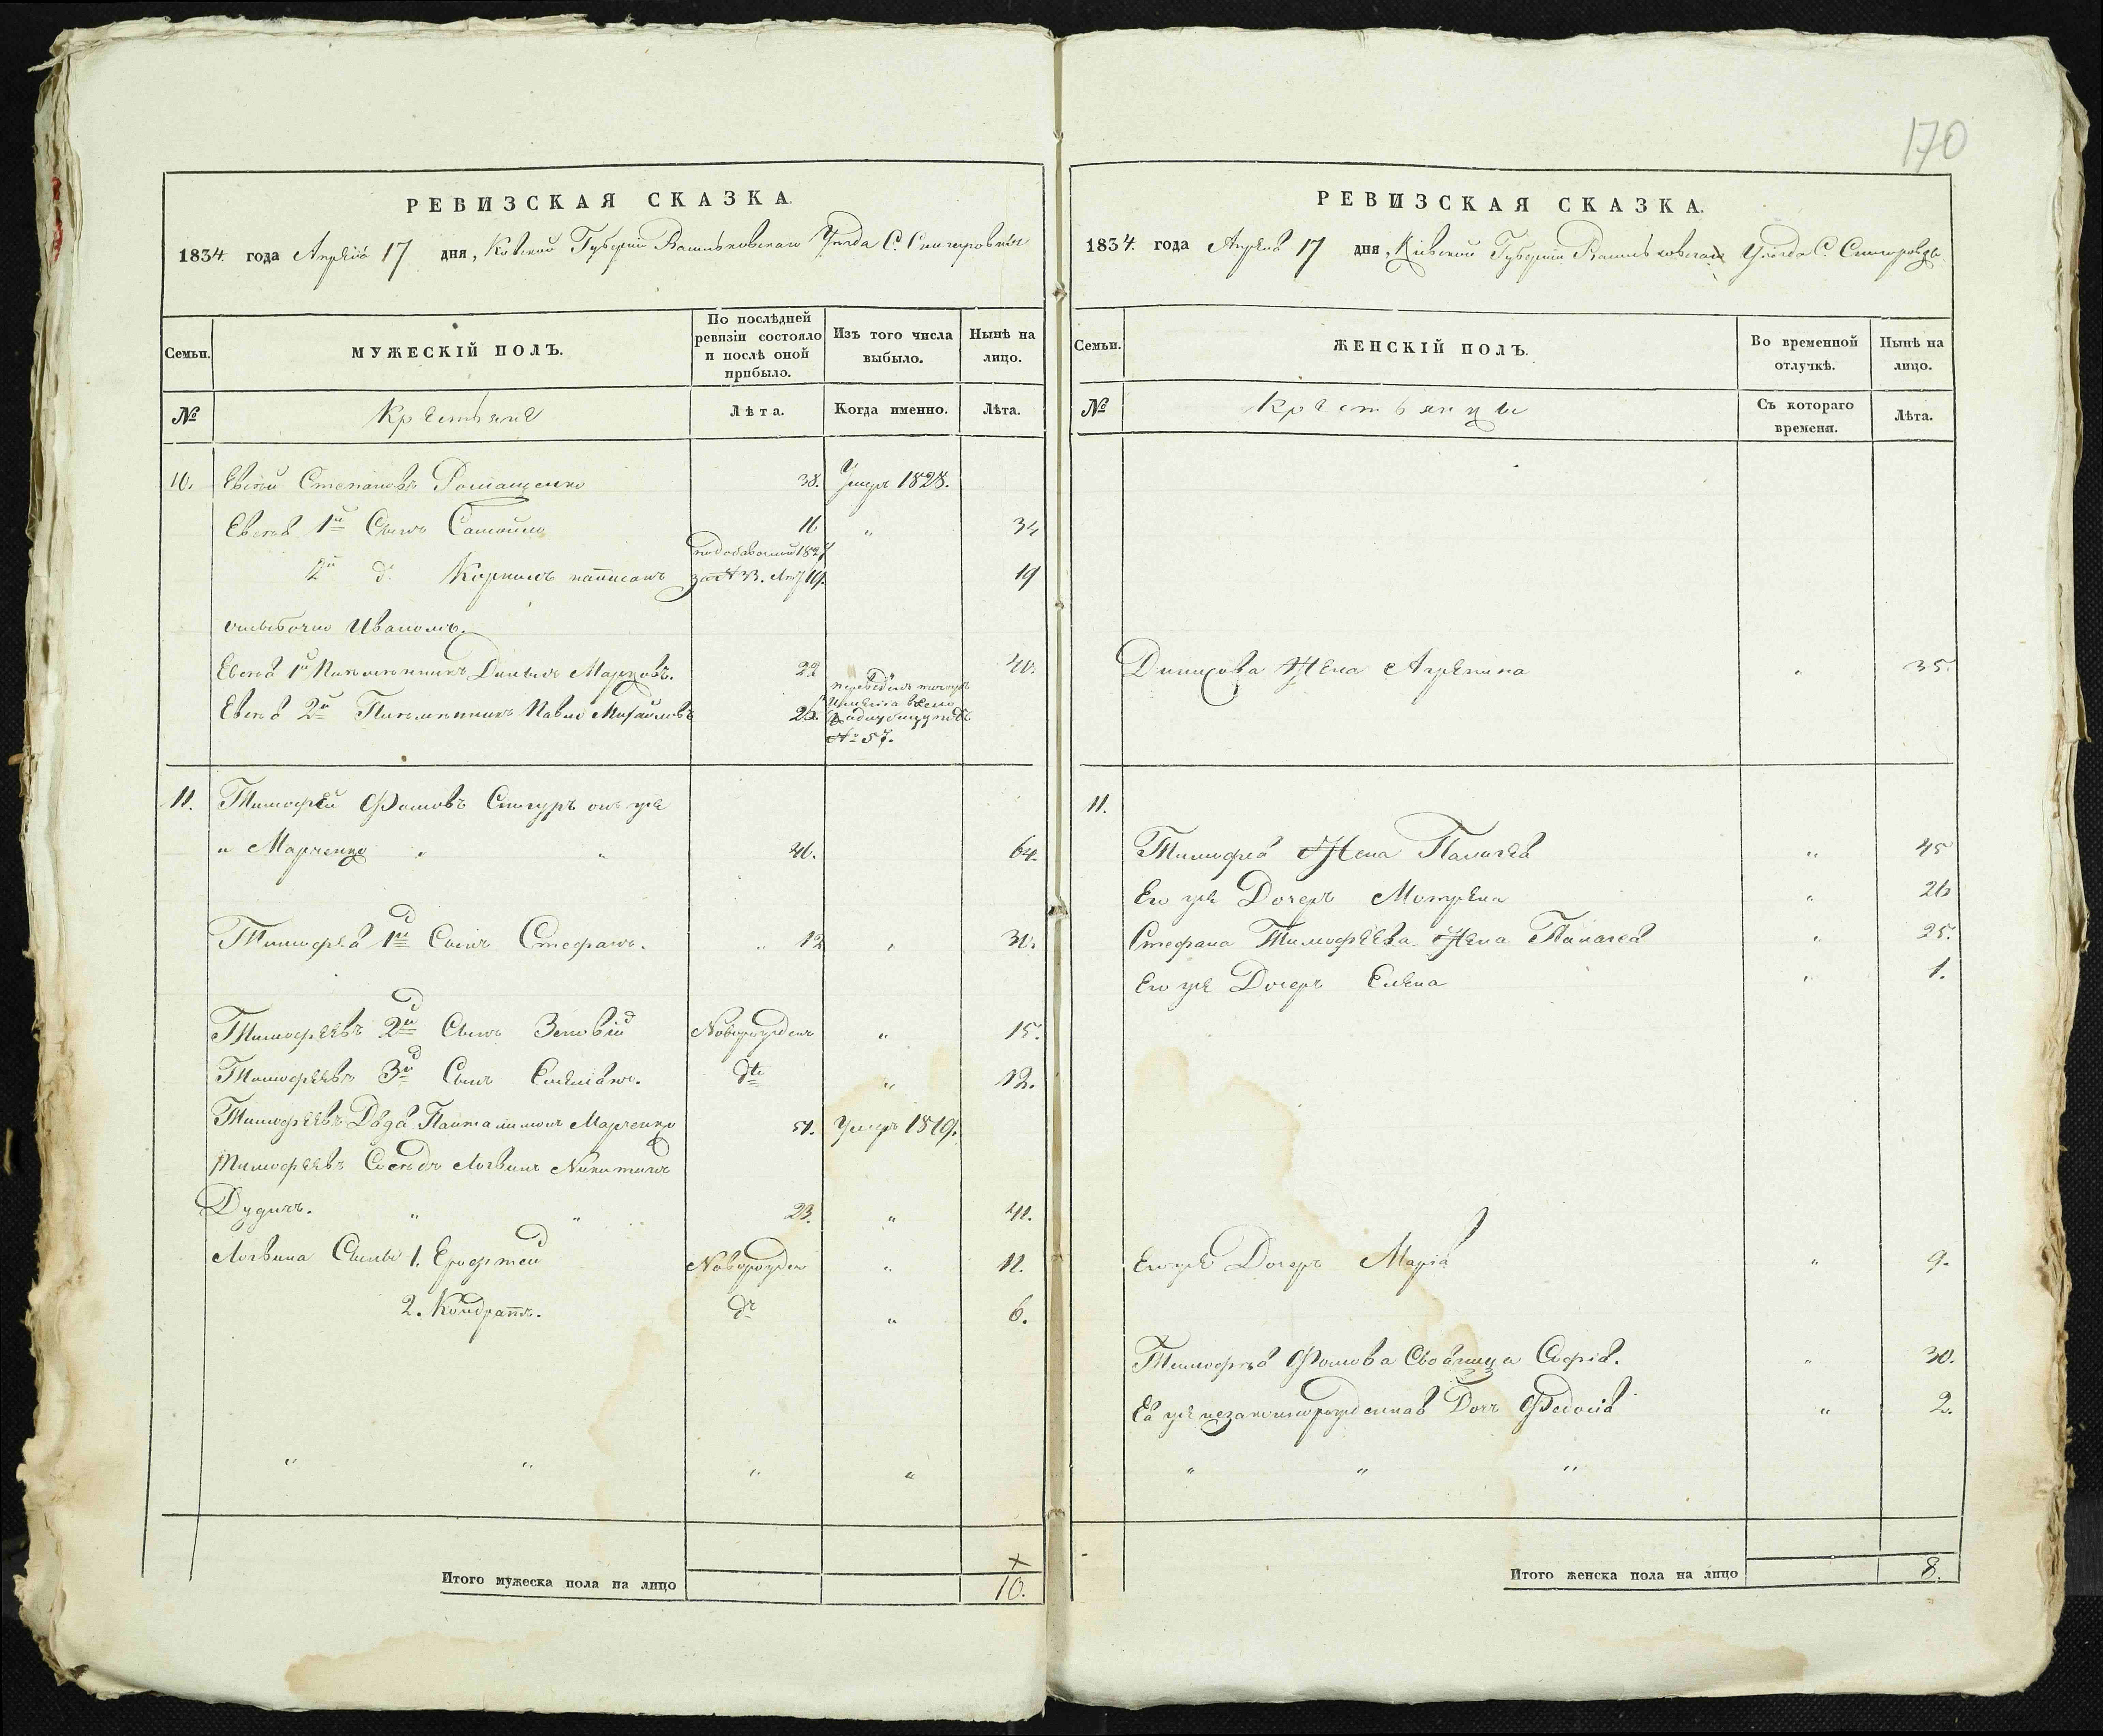 170
РЕВИЗСКАЯ СКАЗКА.
1834 года Апрѣля 17 дня, Кіевской Губерніи Васильковскаго Уѣзда С.
Семьи.
МУЖЕСКІЙ ПОЛЪ.
По послѣдней ревизіи состояло и послѣ оной прибыло.
Изъ того числа выбыло.
Нынѣ на лицо.
№
Крестьяне
Лѣта.
Когда именно.
Лѣта.
10. Евсѣй Степановъ Ромащенко 38. Умеръ 1828.
Евсѣя 1й Сынъ Самойло 16 " 34
2й до Корнило написанъ 19
ошибочно Иваномъ.
Евсѣя 1й Племянникъ Данило Марковъ. 22 40.
Евсѣя 2й Племянникъ Павло Михайловъ 25.
№ 57.
11. Тимофѣй Фомовъ Снигуръ онъ же
и Марченко " " 46. 64.
Тимофѣя 1й Сынъ Стефанъ. " 12 " 30.
Тимофѣевъ 2й Сынъ Зеновій Новорожденъ " 15.
Тимофѣевъ 3й Сынъ Емеліанъ. дто " 12.
Тимофѣевъ Дядя Панталимонъ Марченко 51. Умеръ 1819.
Тимофѣевъ Сосѣдъ Логвинъ Никитинъ
Дудичъ. " " 23. " 41.
Логвина Сыны 1. Ерофтей Новорожден " 11.
2. Кондратъ. до " 6.
" " " "
Итого мужеска пола на лицо 10.
РЕВИЗСКАЯ СКАЗКА.
1834 года Апрѣля 17 дня, Кіевской Губерніи Васильковскаго Уѣзда С.
Семьи.
ЖЕНСКІЙ ПОЛЪ.
Во временной отлучкѣ.
Нынѣ на лицо.
№
Крестьянки
Съ котораго времени.
Лѣта.
Жена Агрепина " 35.
11.
Тимофея Жена Палагея " 45
Его же Дочерь Мотрена " 26
Стефана Тимофѣева Жена Палагея " 25.
Его же Дочерь Елена " 1.
Его же Дочерь Марія " 9.
Тимофѣя Фомова Своячица Софія. " 30.
Ея же незаконнорожденная Дочь Федосія " 2.
" " "
Итого женска пола на лицо 8.